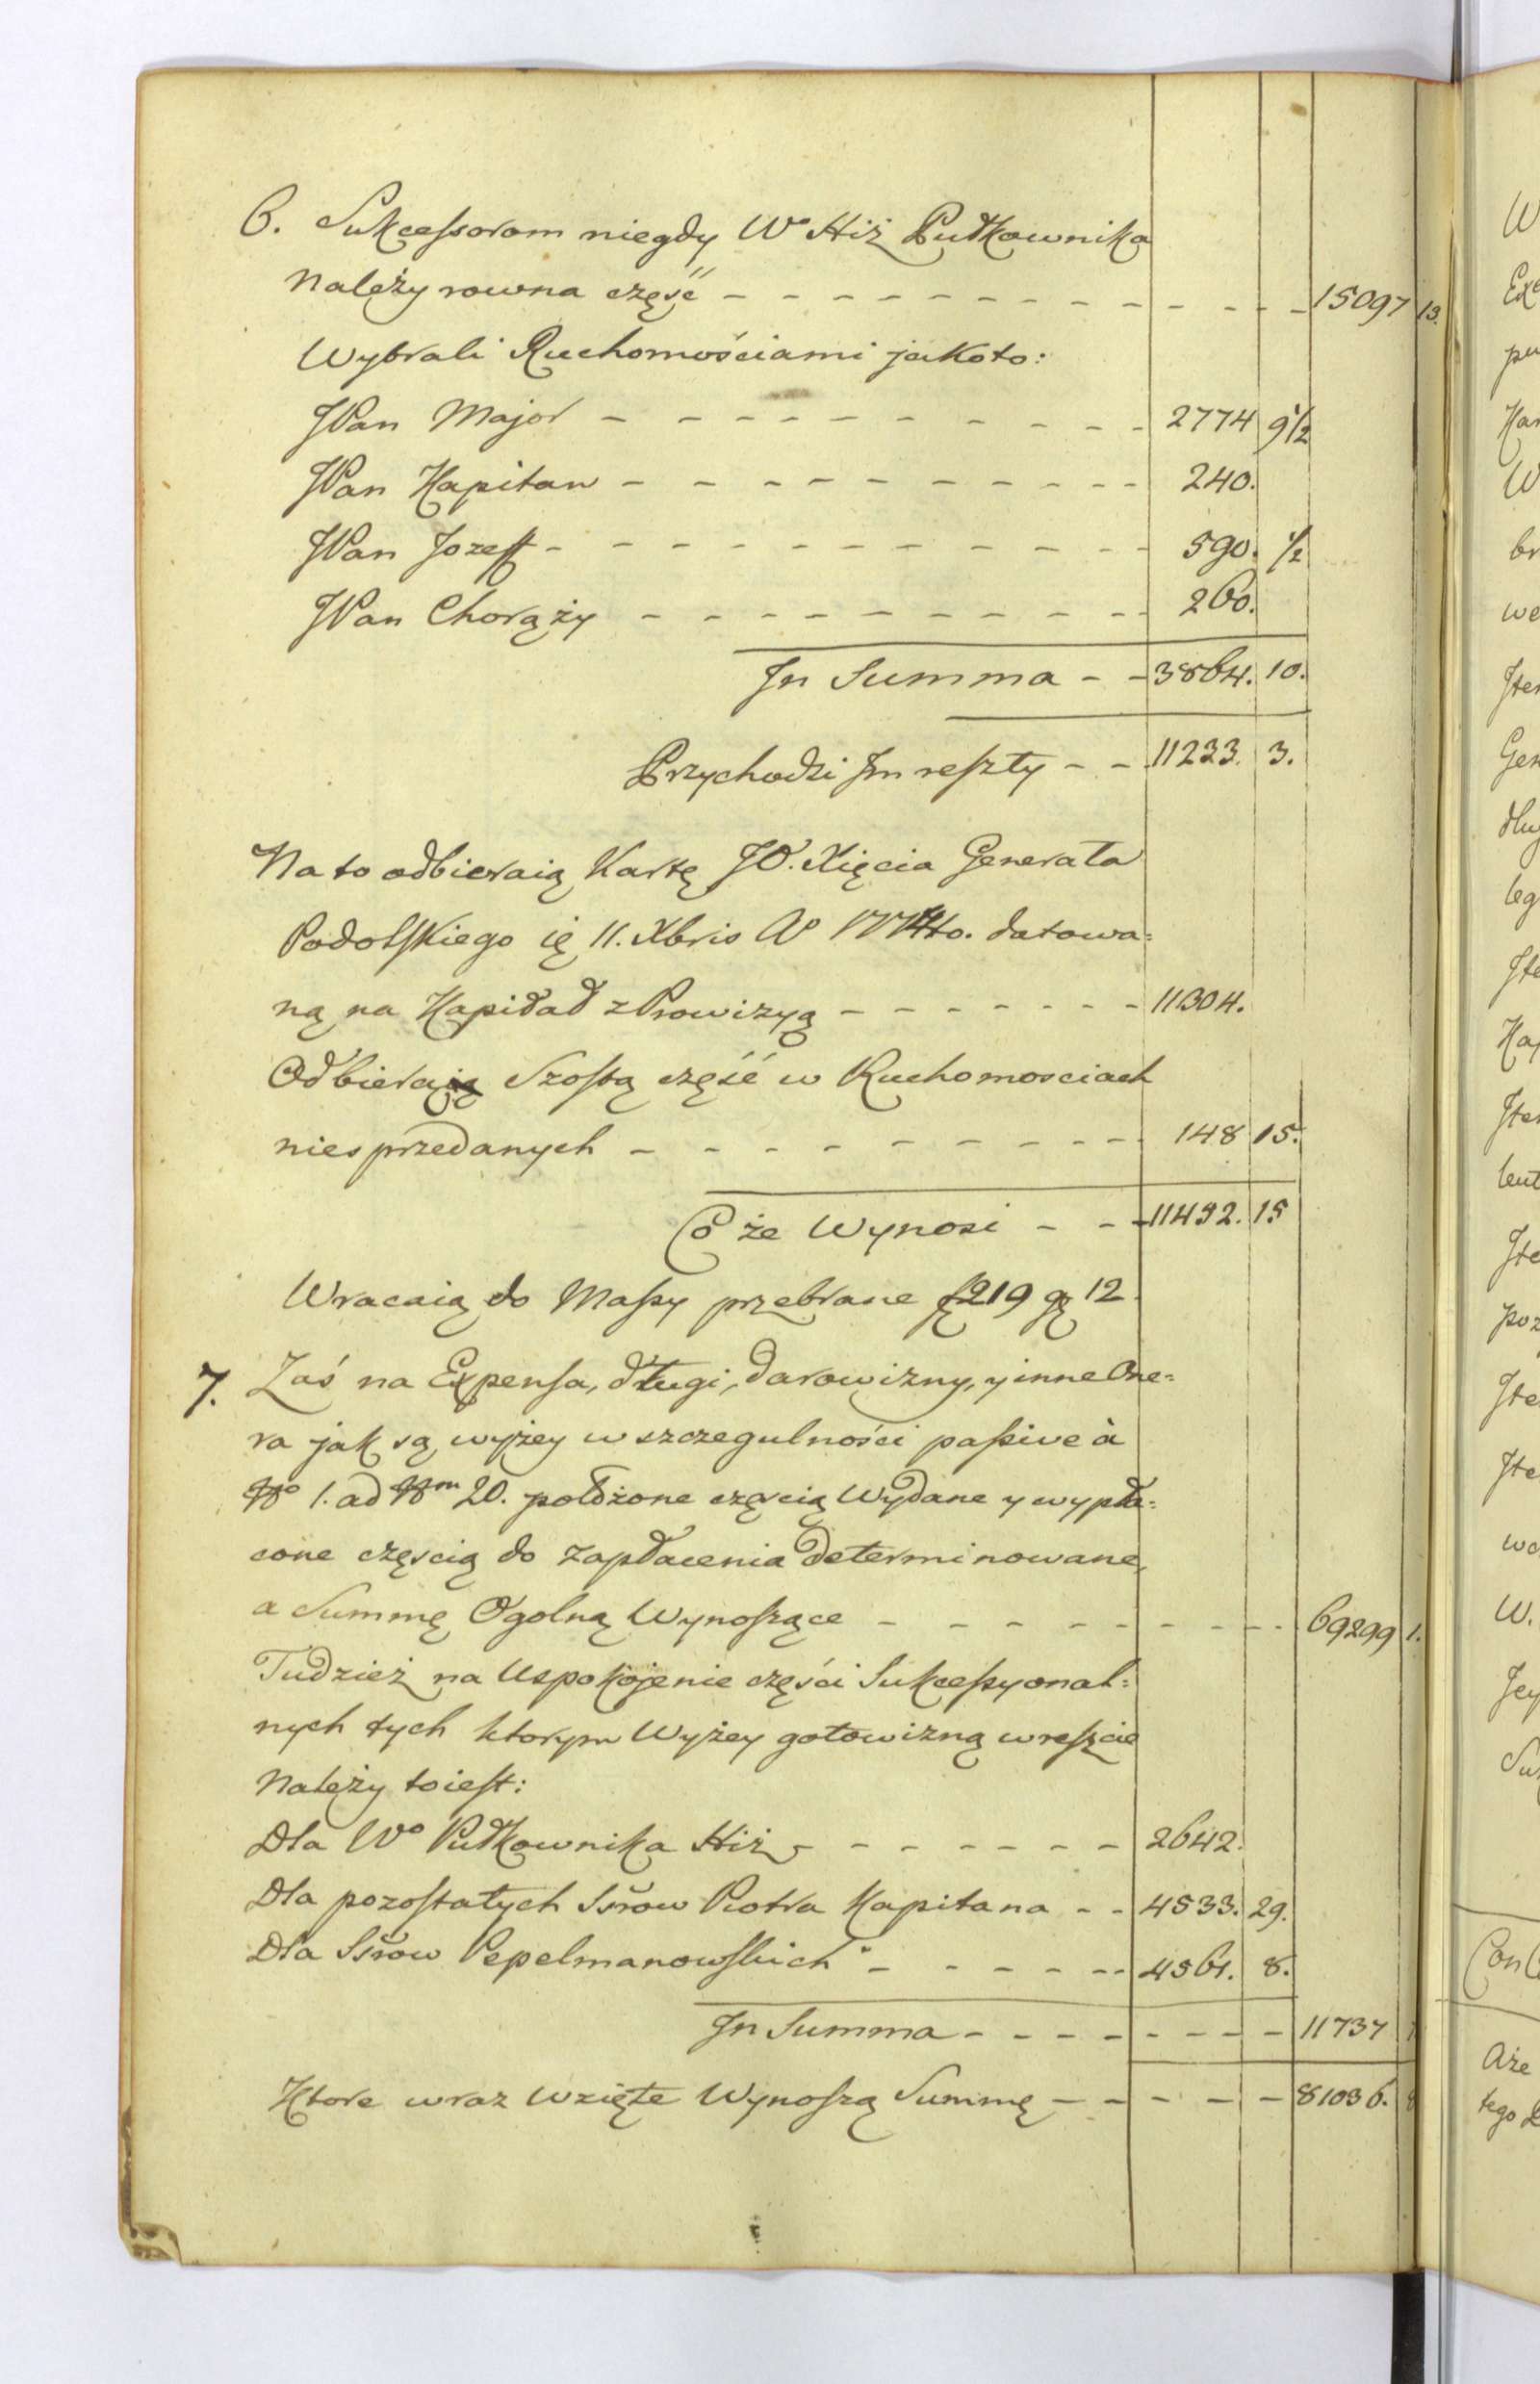 6. Sukcessorom niegdy Wo Hiż Pułkownika
Należy rowna część - - - 15097 13.
Wybrali Ruchomościami jakoto:
JPan Major - - - 2774 9½
JPan Kapitan - - - 240.
JPan Jozeff - - - 590. ½
JPan Chorąży - - - 260.
In Summa - - 3864. 10.
Przychodzi Im reszty - - 11233. 3.
Na to odbieraią Kartę JO. Xięcia Generała
Podolskiego ię 11. Xbris Ao 1774to. datowa=
ną na Kapitał z Prowizyą - - - 11304.
Odbieraią Szostą część w Ruchomosciach
niesprzedanych - - - 148 15.
Co że Wynosi - - - 11452. 15
Wracaią do Massy przebrane f 219 gr 12
7. Zaś na Expensa, długi, darowizny, y inne One=
ra jak są wyżey w szczegulności passive à
No 1. ad Nm 20. położone częścią Wydane y wypła=
cone częscią do zapłacenia determinowane,
a Summę Ogolną Wynoszące - - - 69299 1.
Tudzież na Uspokojenie części Sukcessyonal=
nych tych ktorym Wyżey gotowizną wreszcie
Należy toiest:
Dla Wo Pułkownika Hiż - - - 2642.
Dla pozostałych Ssrow Piotra Kapitana - - 4533. 29.
Dla Ssrow Pepelmanowskich - - - 4561. 8.
In Summa - - - 11737
Ktore wraz wzięte Wynoszą Summę - - - 81036.